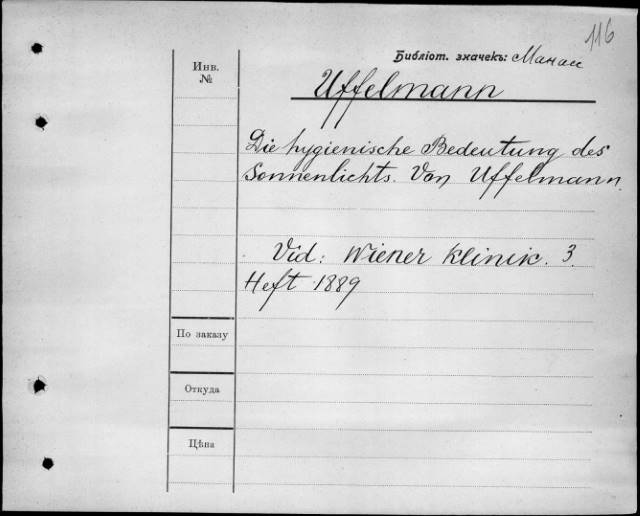 116
Библіот. значекъ:
Инв.
№
Uffelmann
Die hygienische Bedeutung des
Sonnenlichts. Von Uffelmann.
Vid: Wiener Klinik. 3.
Heft 1889
По заказу
Откуда
Цѣна